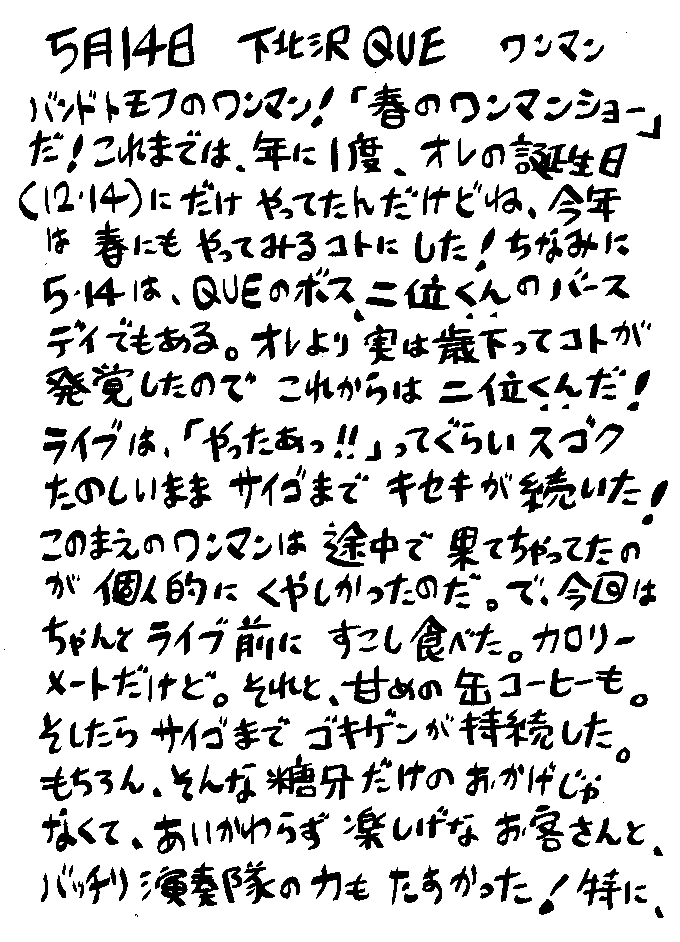 5月14日 下北沢QUE ワンマン
バンドトモフのワンマン!「春のワンマンショー」
だ!これまでは、年に1度、オレの誕生日
(12·14)にだけ やってたんだけどね、今年
は 春にも やってみるコトに した!ちなみに
5·14は、QUEのボス、二位くんのバース
デイでもある。オレより 実は歳下ってコトが
発覚したので これからは 二位くんだ!
ライブは、「やったあっ!!」ってぐらい スゴク
たのしいまま サイゴまで キセキが 続いた!
このまえのワンマンは 途中で 果てちゃってたの
が 個人的に くやしかったのだ。で、今回は
ちゃんと ライブ前に すこし食べた。カロリー
メートだけど。それと、甘めの缶コーヒーも。
そしたら サイゴまで ゴキゲンが 持続した。
もちろん、そんな 糖分だけの おかげじゃ
なくて、あいかわらず 楽しげな お客さんと、
バッチリ 演奏隊の力も たすかった!特に、